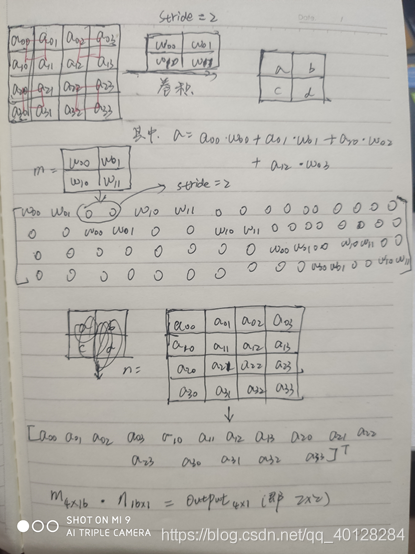 stride=2
a00 a01 a02 a03
a10 a11 a12 a13
a20 a21 a22 a23
a30 a31 a32 a33
w00 w01
卷积
a b
c d
其中 a=a00·w00+a01·w01+a20·w02
+ a12·w03
m=
w00 w01
w10 w11
stride=2
w00 w01 0 0 w10 w11 0 0 0 0 0 0 0 0 0 0
0 0 w00 w01 0 0 w10 w11 0 0 0 0 0 0 0 0
0 0 0 0 0 0 0 0 w00 w01 0 0 w10 w11 0 0
0 0 0 0 0 0 0 0 0 0 w00 w01 0 0 w10 w11
c d
n=
a00 a01 a02 a03
a10 a11 a12 a13
a20 a21 a22 a23
a30 a31 a32 a33
[a00 a01 a02 a03 a10 a11 a12 a13 a20 a21 a22
a23 a30 a31 a32 a33]T
m4x16 · n16x1 = output4x1 (即 2x2)
SHOT ON MI 9
AI TRIPLE CAMERA
https://blog.csdn.net/qq_40128284